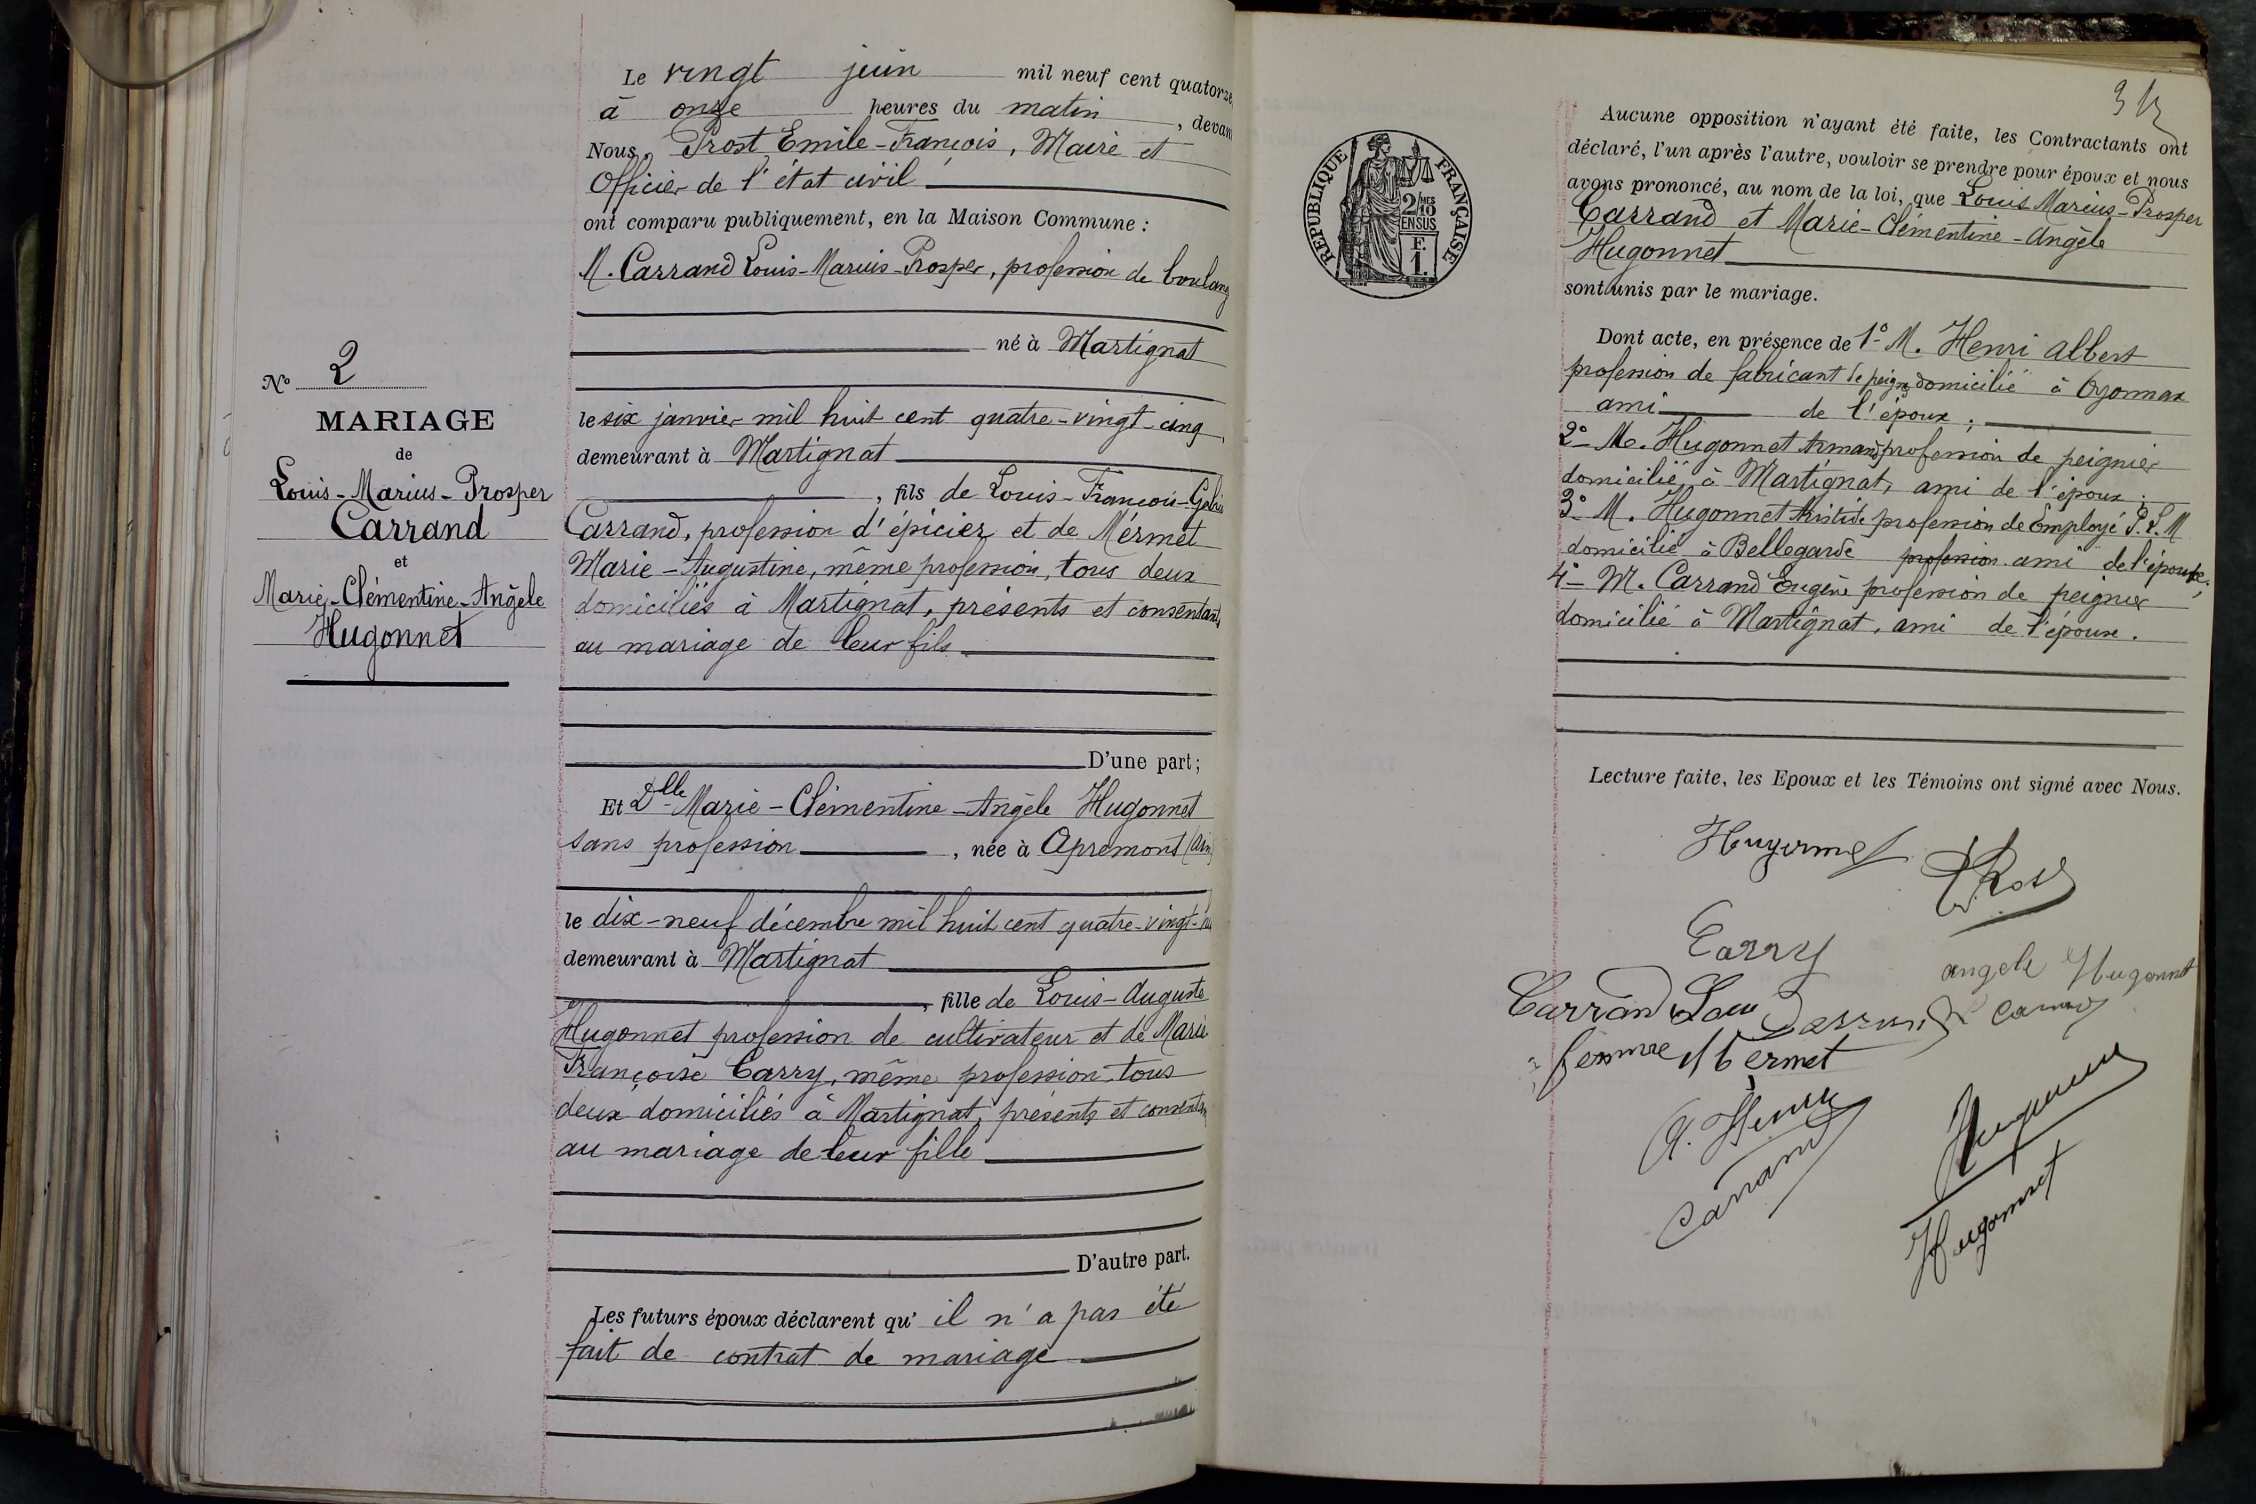 N° 2
MARIAGE
de
Louis-Marius-Prosper
Carrand
et
Marie-Clémentine-Angèle
Hugonnet
Le vingt juin mil neuf cent quatorze,
à onze heures du matin, devan
Nous, Prost Emile-François, Maire et
Officier de l'état civil
ont comparu publiquement, en la Maison Commune :
M. Carrand Louis-Marius-Prosper, profession de boulang
né à Martignat
le six janvier mil huit cent quatre-vingt-cinq,
demeurant à Martignat
, fils de Louis-François-
Carrand, profession d'épicier et de Mermet
Marie-Augustine, même profession, tous deux
domiciliés à Martignat, présents et consentants
au mariage de leur fils
D'une part;
Et Dlle Marie-Clémentine-Angèle Hugonnet
sans profession, née à Apremont (Ain
le dix-neuf décembre mil huit cent quatre-vingt-
demeurant à Martignat
, fille de Louis-Auguste
Hugonnet profession de cultivateur et de Marie
Françoise Carry, même profession tous
deux domiciliés à Martignat, présents et consentan
au mariage de leur fille
D'autre part.
Les futurs époux déclarent qu'il n'a pas été
fait de contrat de mariage
RÉPUBLIQUE FRANÇAISE
2/10MES
EN SUS
F.
1.
Aucune opposition n'ayant été faite, les Contractants ont
déclaré, l'un après l'autre, vouloir se prendre pour époux et nous
avons prononcé, au nom de la loi, que Louis Marius-Prosper
Carrand et Marie-Clémentine-Angèle
Hugonnet
sont unis par le mariage.
Dont acte, en présence de 1° M. Henri Albert
profession de fabricant de peignes domicilié à Oyonnax
ami de l'époux ;
2° M. Hugonnet Armand profession de peignier
domicilié à Martignat, ami de l'époux ;
3° M. Hugonnet Aristide profession de Employé P.L.M
domicilié à Bellegarde profession ami de l'épouse ;
4° M. Carrand Eugène profession de peignier
domicilié à Martignat, ami de l'épouse.
Lecture faite, les Epoux et les Témoins ont signé avec Nous.
Hugonnet
Carry
angele Hugonnet
Carrand Lou
femme Mermet
A. Henri
Carrand
Hugonnet